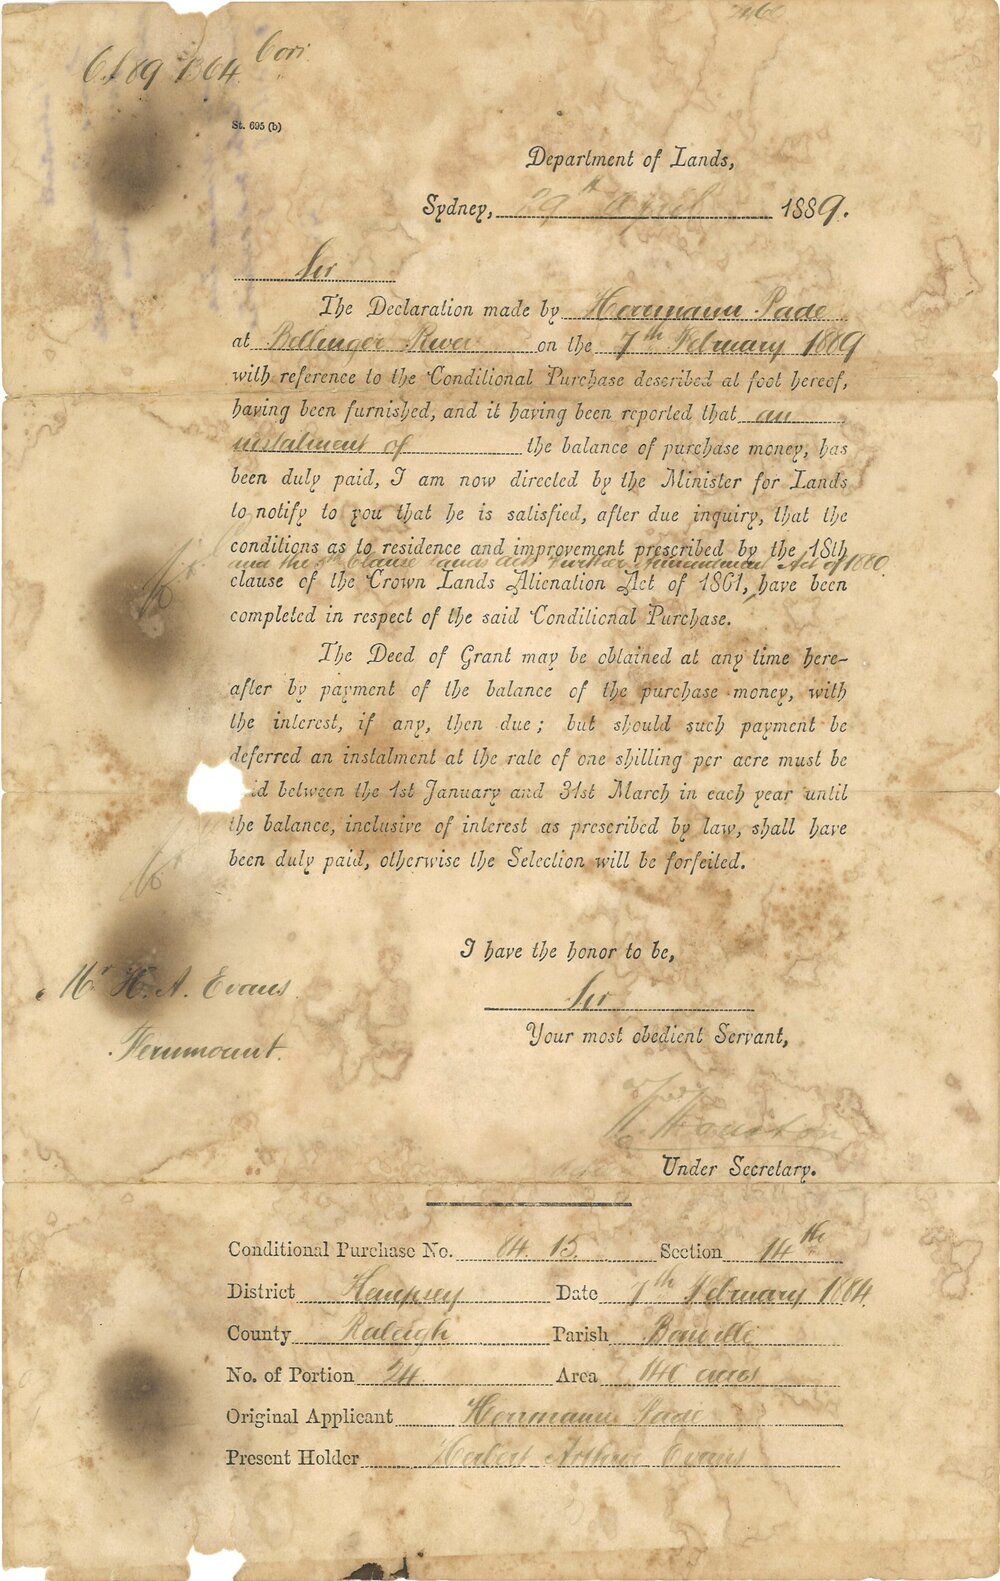 Cs 89 1364 Cori
St. 695 (b)
Department of Lands,
Sydney, 29th April 1889.
Sir
The Declaration made by Herrmann Pade
at Bellinger River on the 7th February 1889
with reference to the Conditional Purchase described at foot hereof,
having been furnished, and it having been reported that an
instalment of the balance of purchase money, has
been duly paid, I am now directed by the Minister for Lands
to notify to you that he is satisfied, after due inquiry, that the
conditions as to residence and improvement prescribed by the 18th
and the 5th Clause Lands Acts Further Amendment Act of 1880
clause of the Crown Lands Alienation Act of 1861, have been
completed in respect of the said Conditional Purchase.
The Deed of Grant may be obtained at any time here-
after by payment of the balance of the purchase money, with
the interest, if any, then due; but should such payment be
deferred an instalment at the rate of one shilling per acre must be
id between the 1st January and 31st March in each year until
the balance, inclusive of interest as prescribed by law, shall have
been duly paid, otherwise the Selection will be forfeited.
I have the honor to be,
Mr H. A. Evans
Sir
Your most obedient Servant,
Fernmount.
Houston
Under Secretary.
Conditional Purchase No. 84.15. Section 14th
District Kempsey Date 7th February 1884
County Raleigh Parish Bonville
No. of Portion 24. Area 140 acres
Original Applicant Herrmann Pade
Present Holder Herbert Arthur Evans